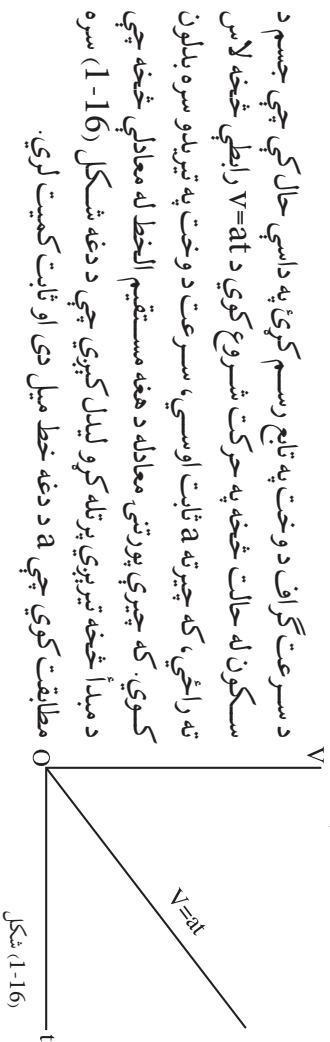 د سرعت گراف د وخت په تابع رسم کړئ په داسې حال کې چې جسم د
سکون له حالت څخه په حرکت شروع کوي د V=at رابطې څخه لاس
ته راځي، که چېرته a ثابت اوسي، سرعت د وخت په تیرېدو سره بدلون
کوي. که چېرې پورتنۍ معادله د هغه مستقیم الخط له معادلې څخه چې
د مبدأ څخه تیرېږي پرتله کړو لیدل کېږي چې د دغه شکل (1-16) سره
مطابقت کوي چې a د دغه خط میل دی او ثابت کمیت لري.
V
V=at
O
t
(1-16) شکل